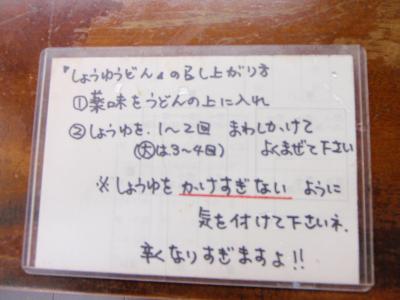 『しょうゆうどん』の召し上がり方
①薬味をうどんの上に入れ
②しょうゆを、1〜2回 まわしかけて
(大は3〜4回) よくまぜて下さい
※しょうゆを かけすぎない ように
気を付けて下さいネ.
辛くなりすぎますよ!!